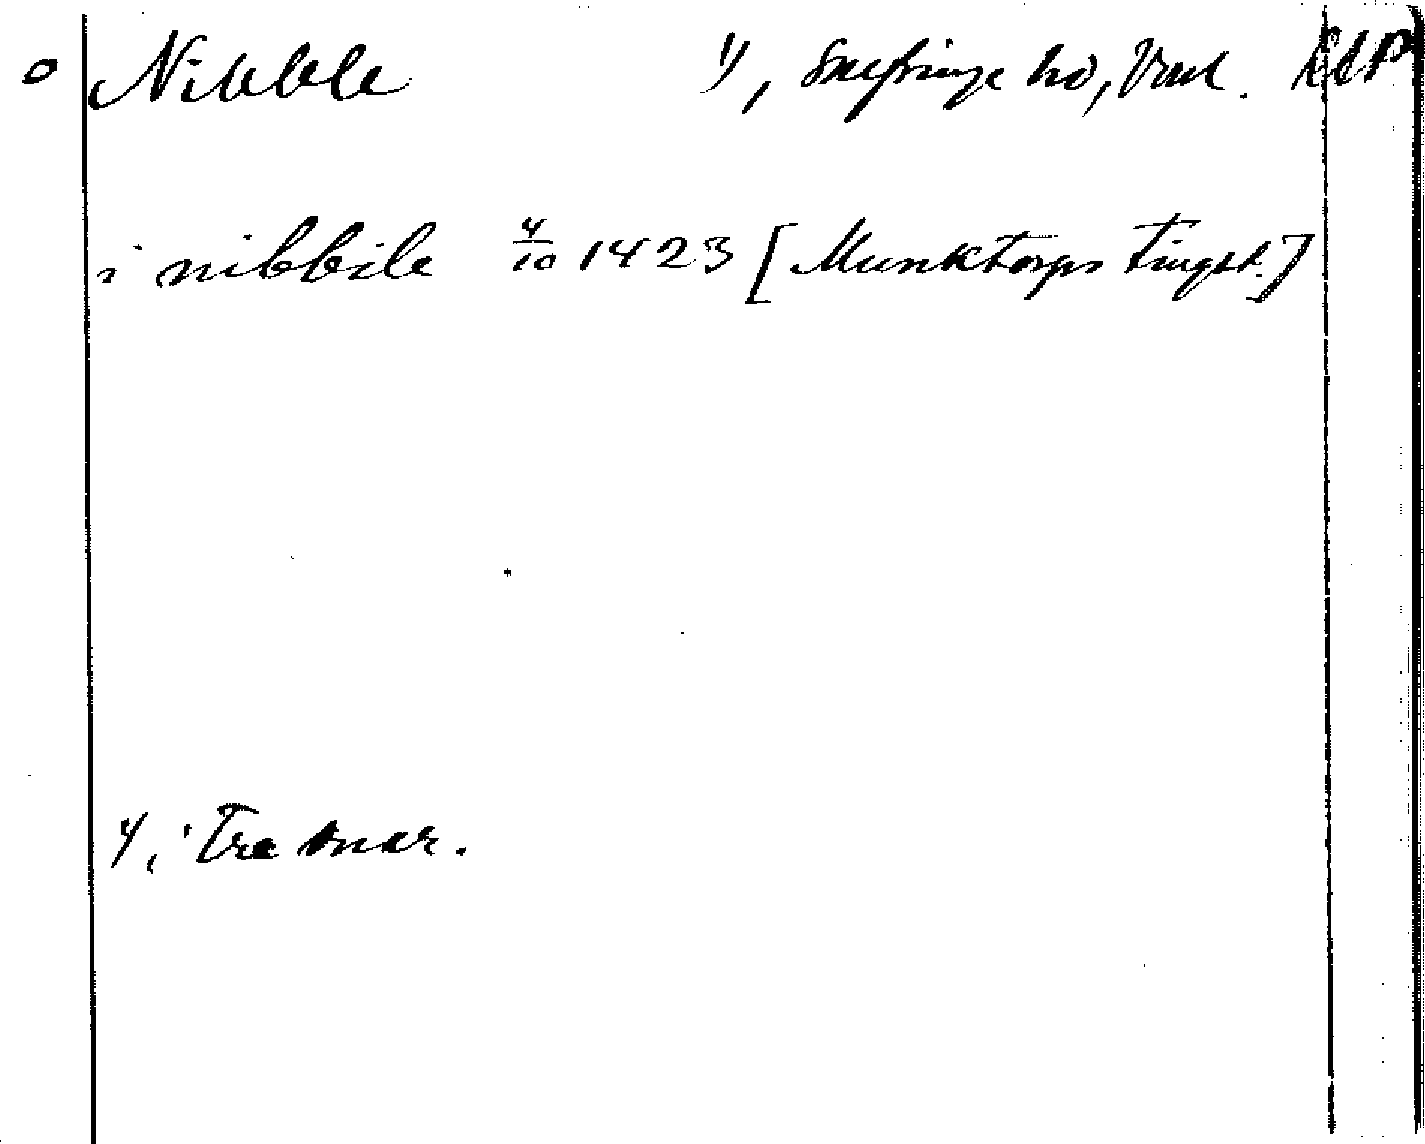 o Nibble 1), Snefringe hd, Vsml. RSP
i nibbile 4/10 1423 [Munktorps tingst.]
1, Tre snar.